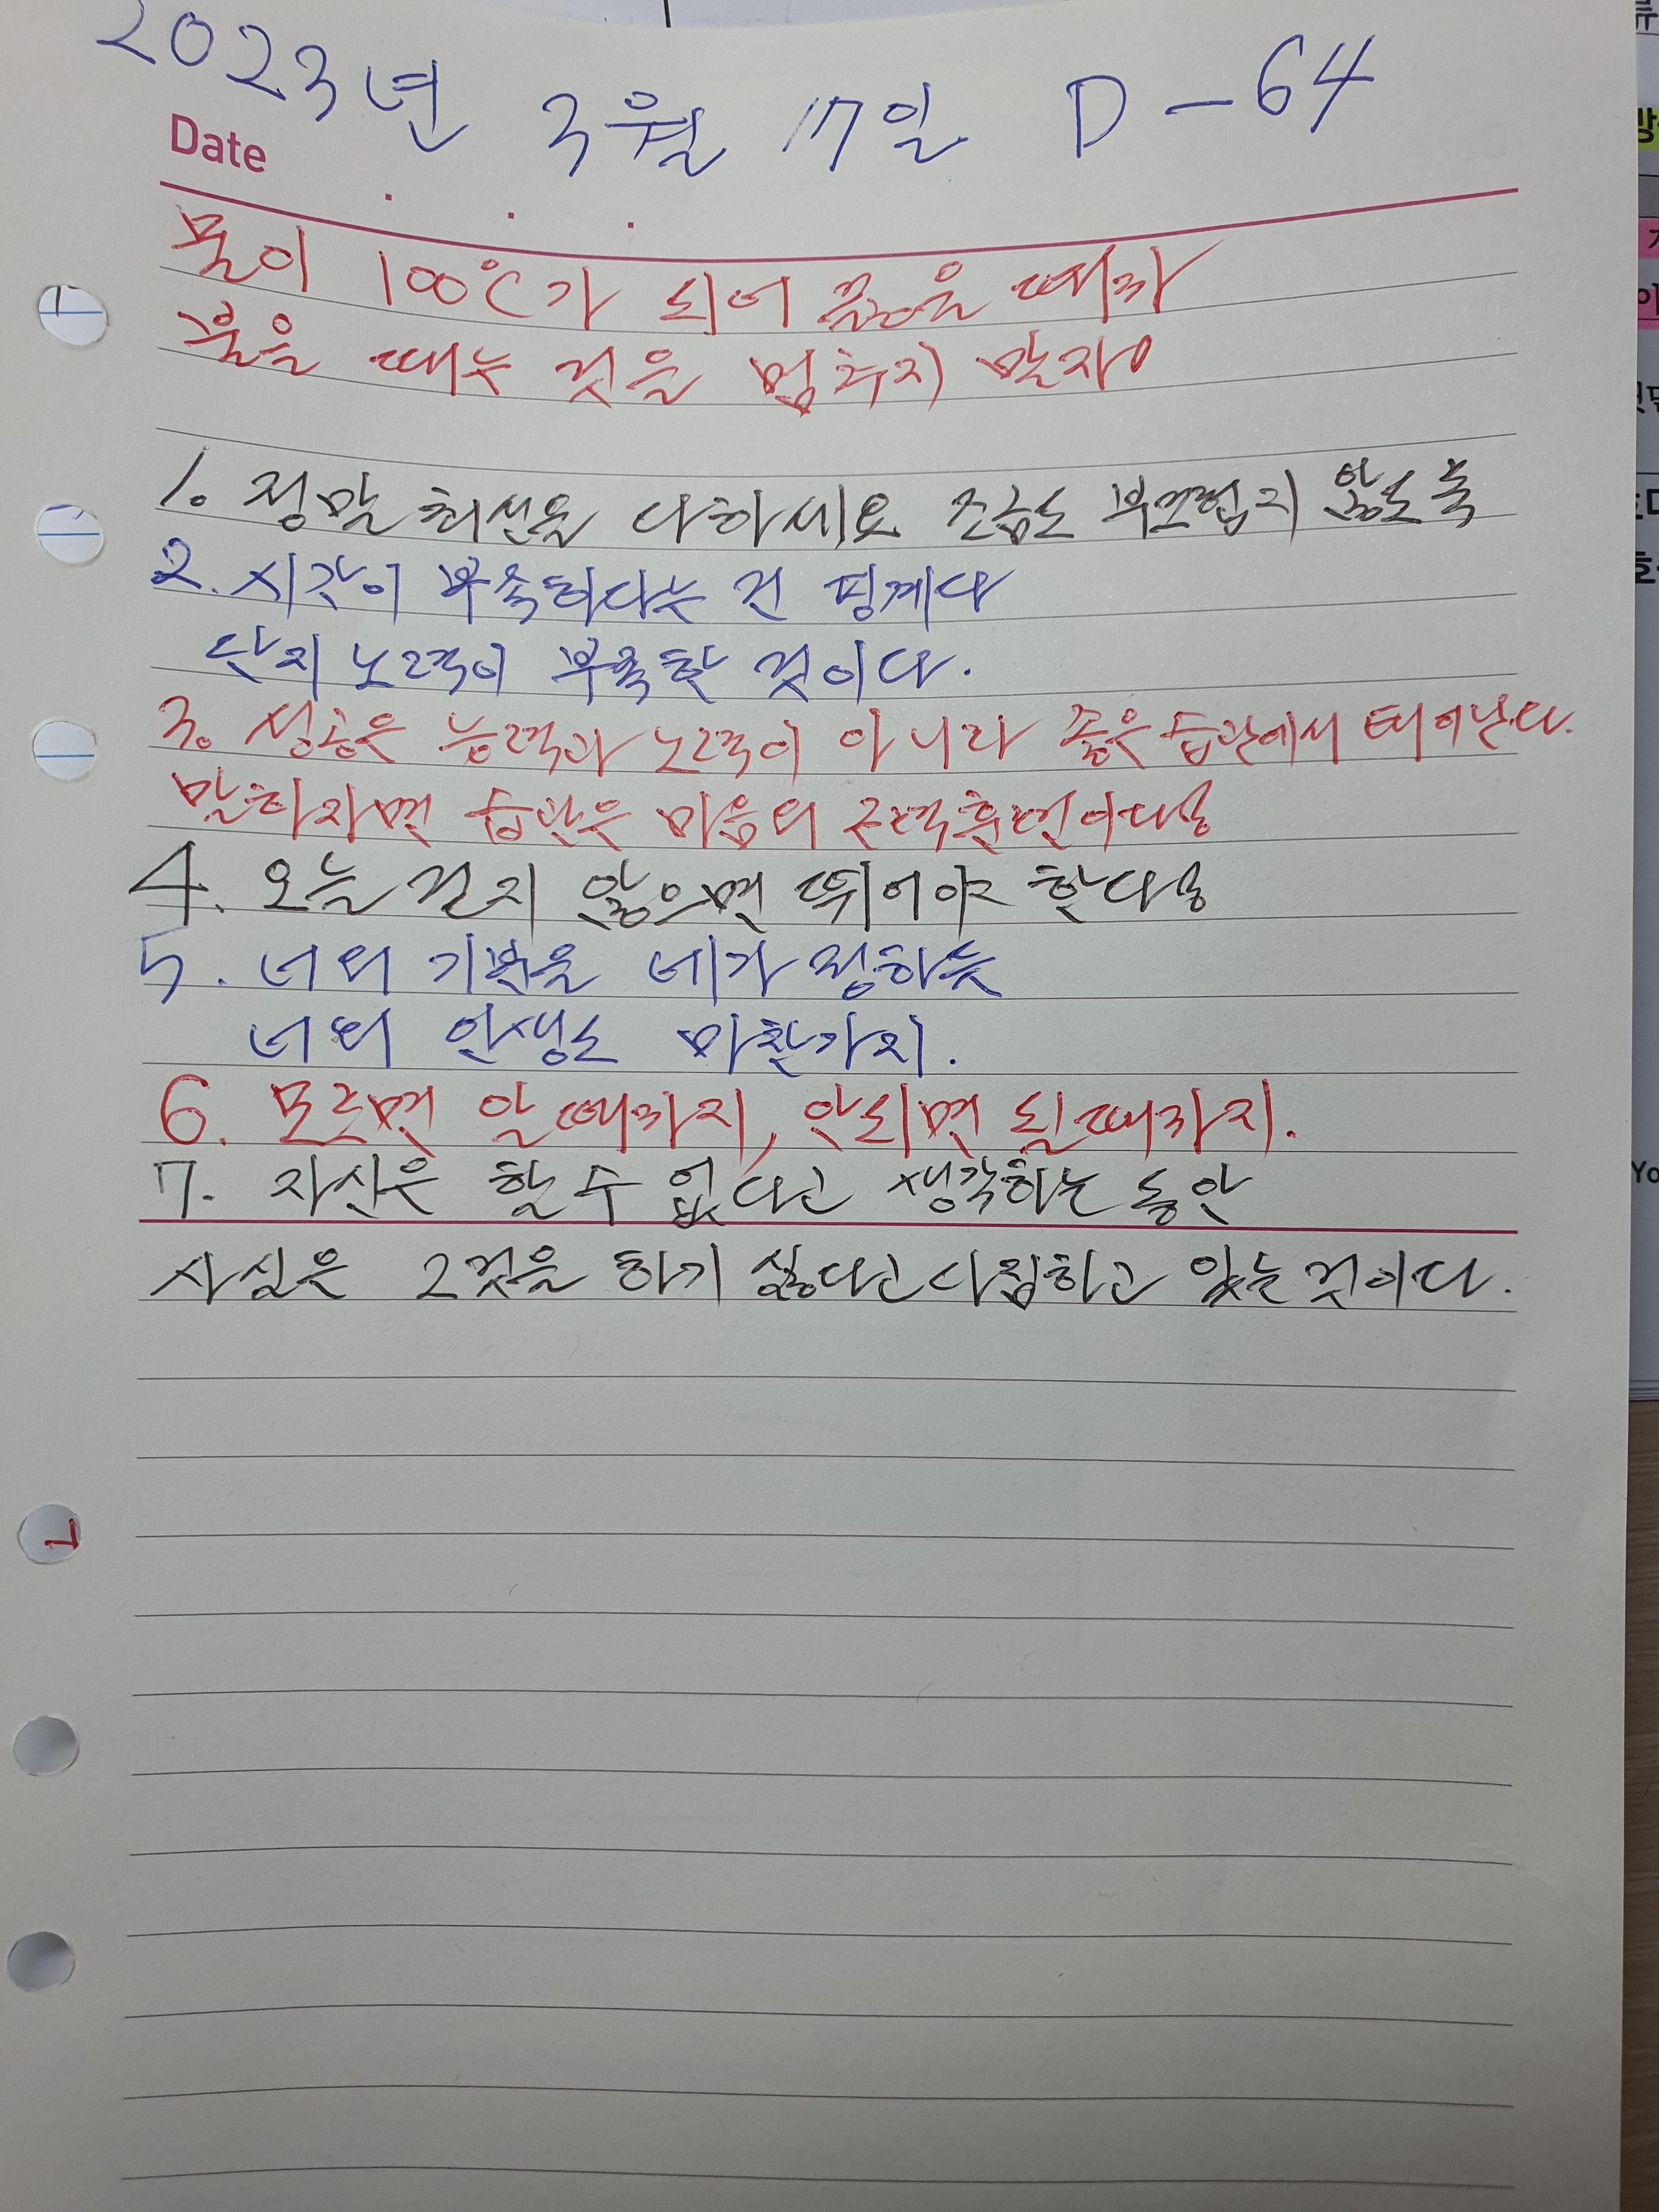 2023년 3월 17일 D-64
Date
물이 100℃가 되어 끓을 때까
불을 때는 것을 멈추지 말자
1. 정말 최선을 다하세요 조금도 부끄럽지 않도록
2. 시간이 부족하다는 건 핑계다
단지 노력이 부족한 것이다.
3. 성공은 능력과 노력이 아니라 좋은 습관에서 태어난다.
말하자면 습관은 마음의 근력훈련이다.
4. 오늘 걷지 않으면 뛰어야 한다.
5. 너의 기분을 네가 정하듯
너의 인생도 마찬가지.
6. 모르면 알때까지, 안되면 될때까지.
7. 자신은 할 수 없다고 생각하는 동안
사실은 그것을 하기 싫다고 다짐하고 있는 것이다.